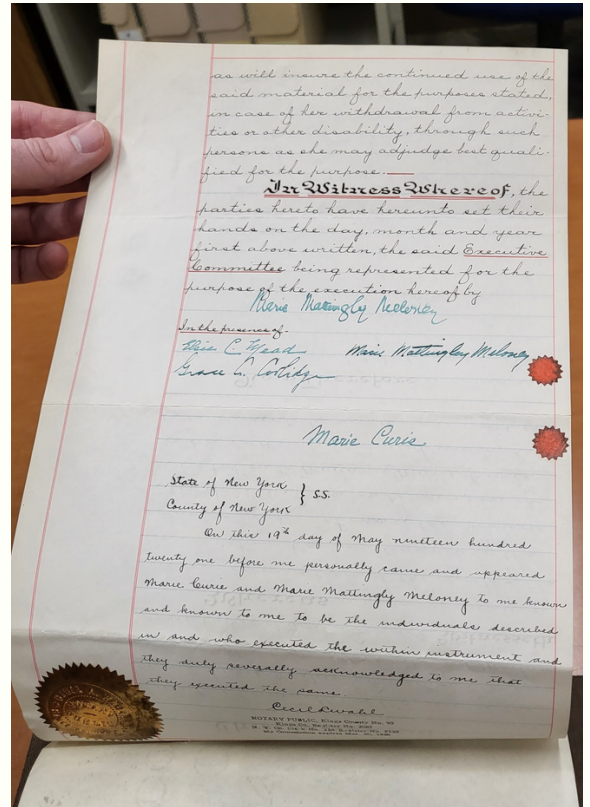 as will insure the continued use of the
said material for the purposes stated,
in case of her withdrawal from activi-
ties or other disability, through such
persons as she may adjudge best quali-
fied for the purpose.
In Witness Whereof, the
parties hereto have hereunto set their
hands on the day, month and year
first above written, the said Executive
Committee being represented for the
purpose of the execution hereof by
Marie Mattingly Meloney
In the presence of:
Elsie C. Mead Marie Mattingley Meloney
Grace A. Coolidge
Marie Curie
State of New York } S.S.
County of New York
On this 19th day of May nineteen hundred
twenty one before me personally came and appeared
Marie Curie and Marie Mattingly Meloney to me known
and known to me to be the individuals described
in and who executed the within instrument and
they duly severally acknowledged to me that
they executed the same.
NOTARY PUBLIC, Kings County No.
Kings Co. Register No.
My Commission expires